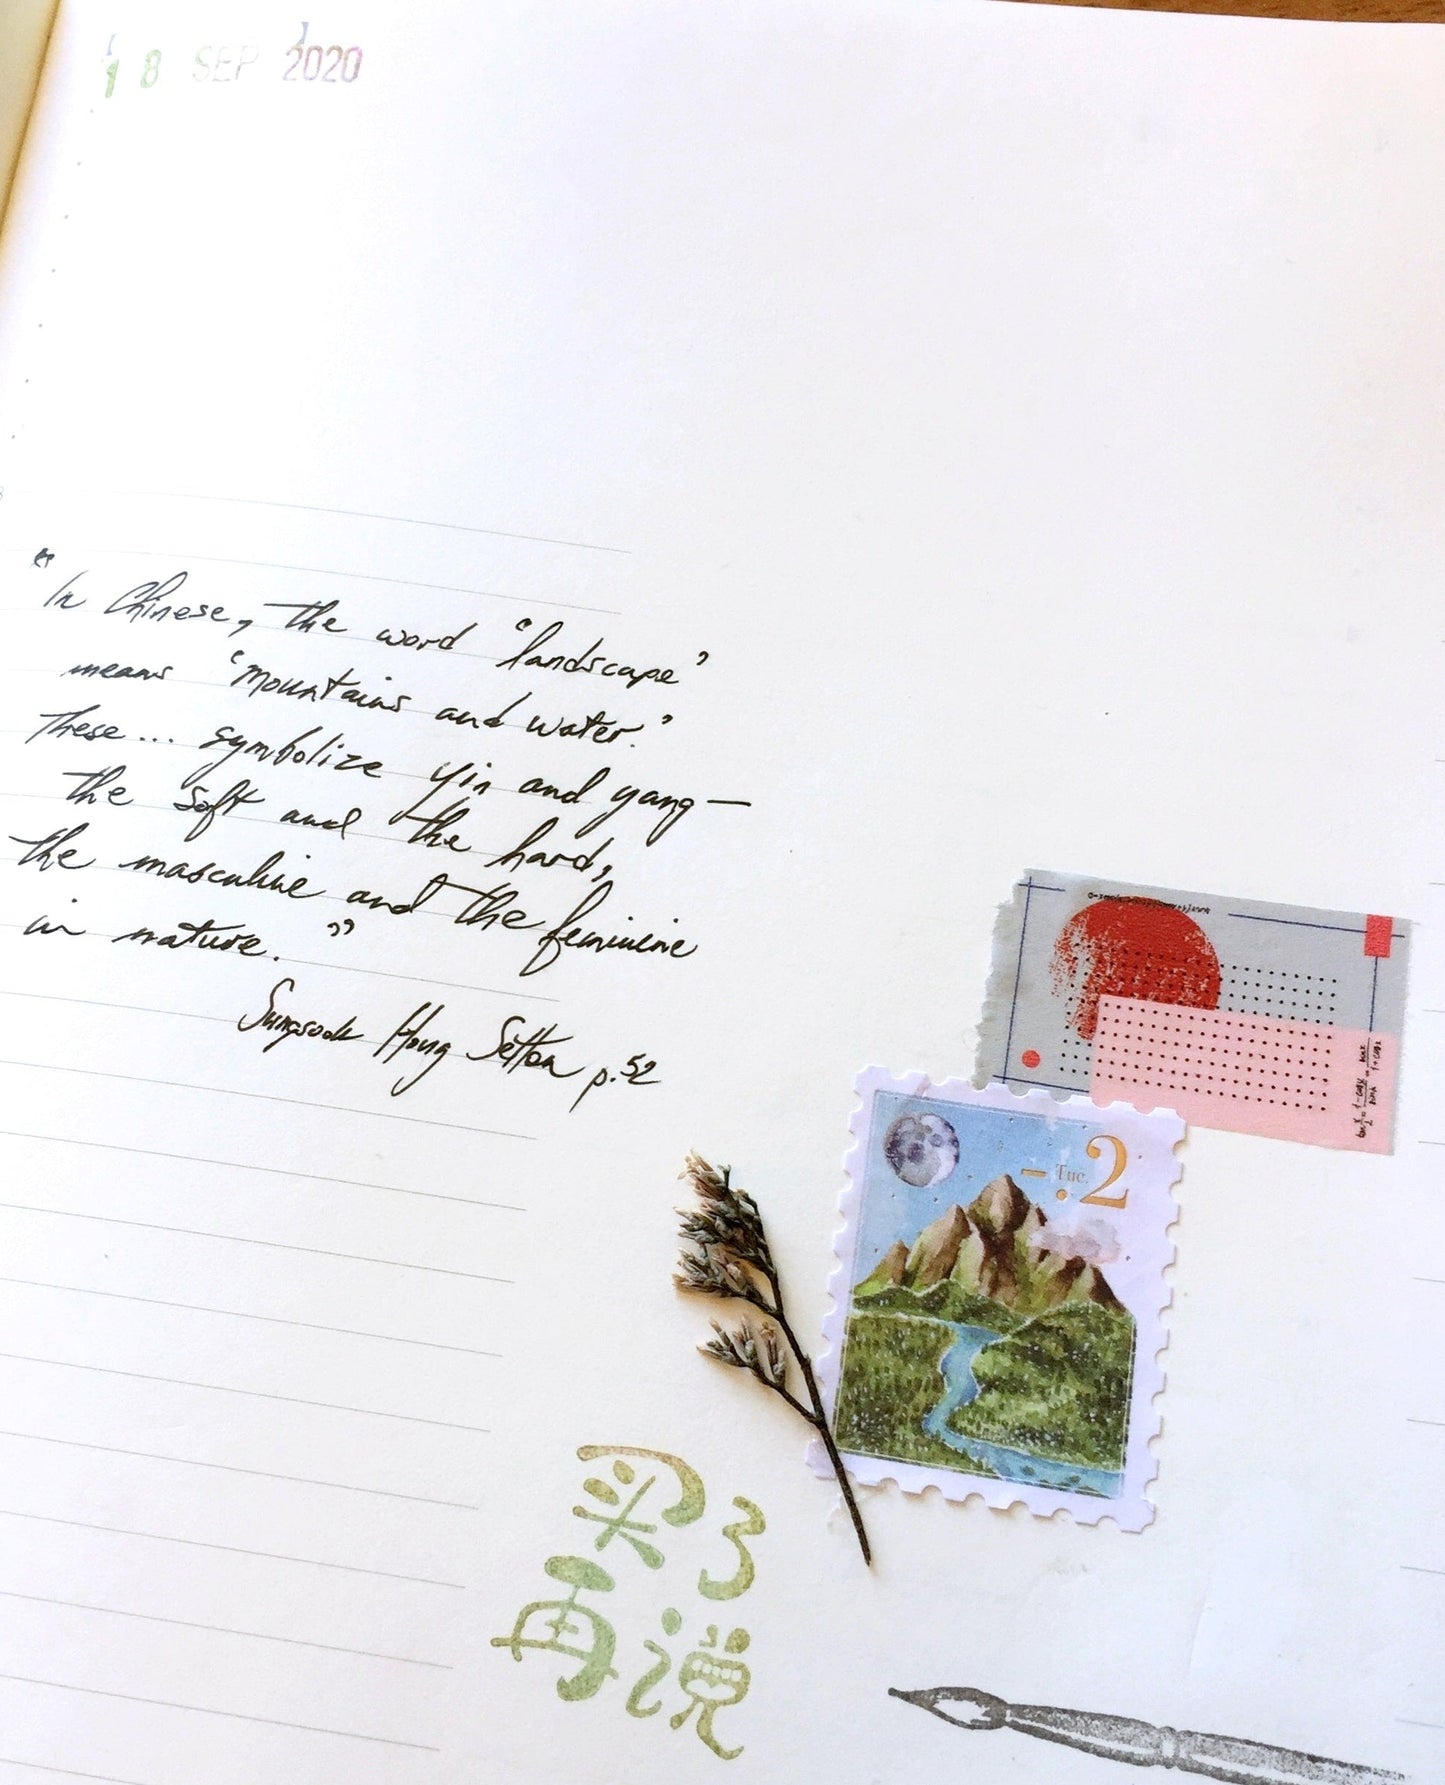 18 SEP 2020
"In Chinese, the word "landscape"
means "mountains and water."
These... symbolize yin and yang—
the soft and the hard,
the masculine and the feminine
in nature."
Sungsook Hong Setton p.52
Tue. 2
买了
再说